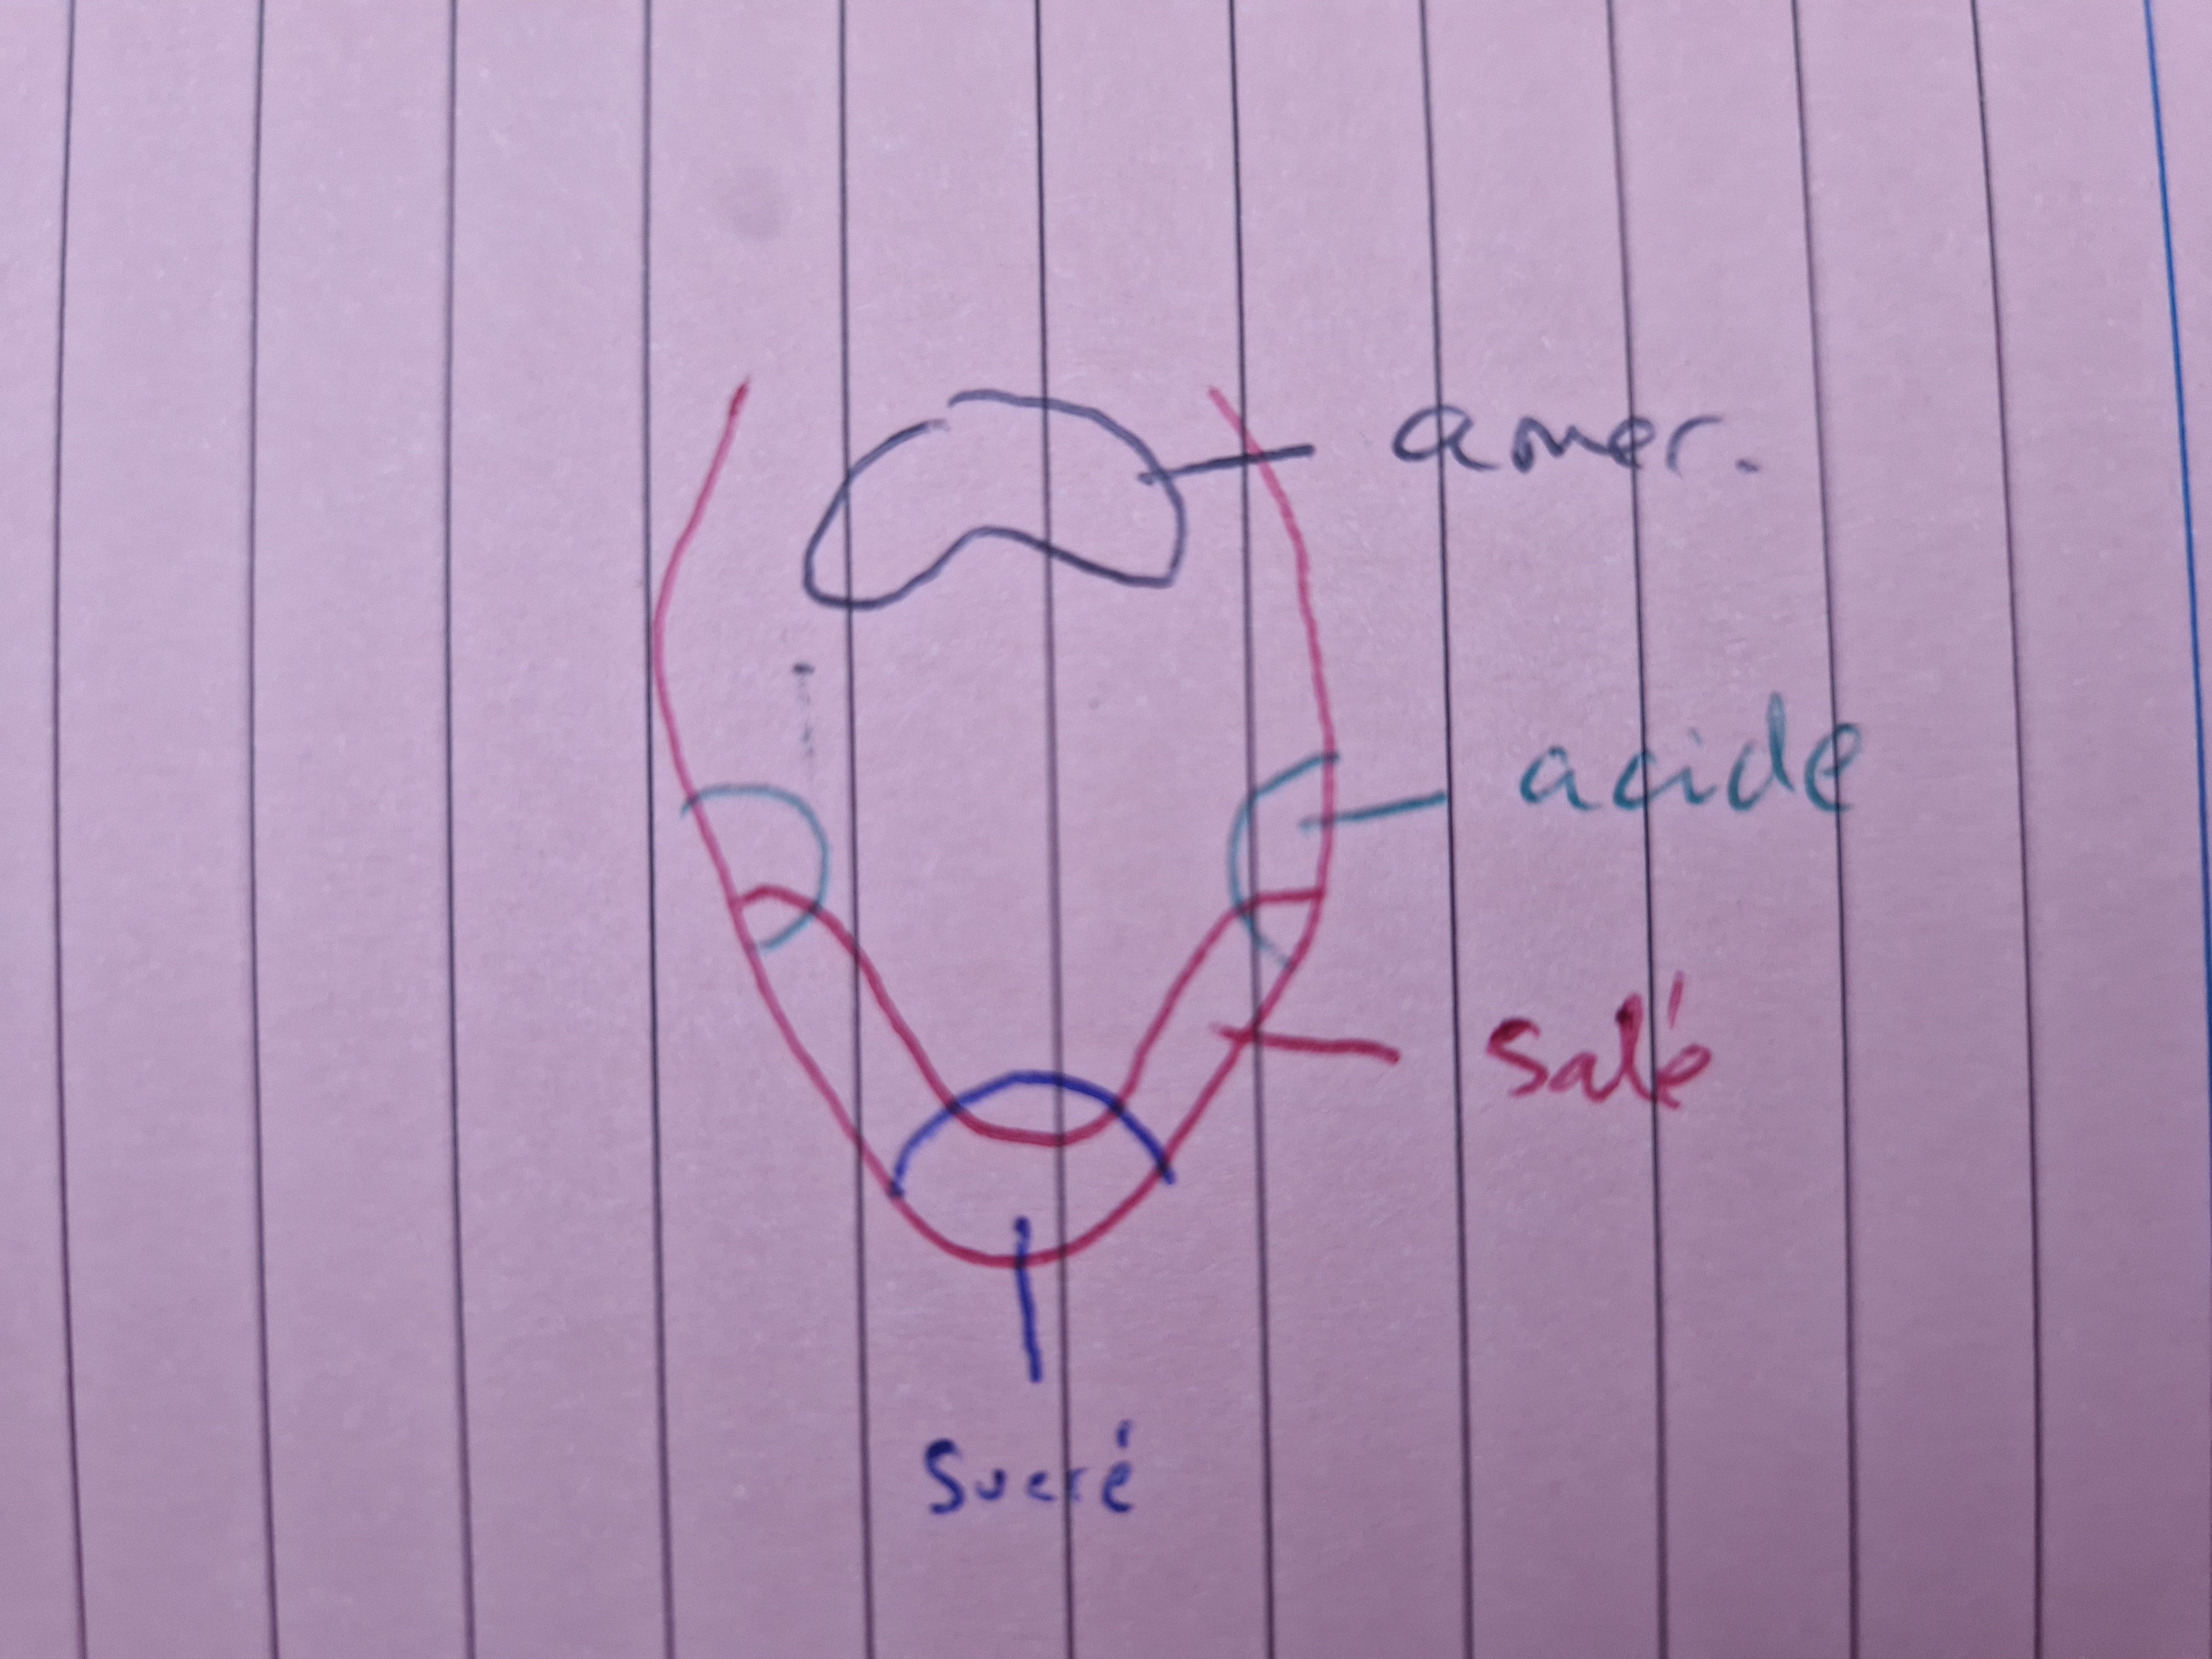 amer.
acide
Salé
Sucré